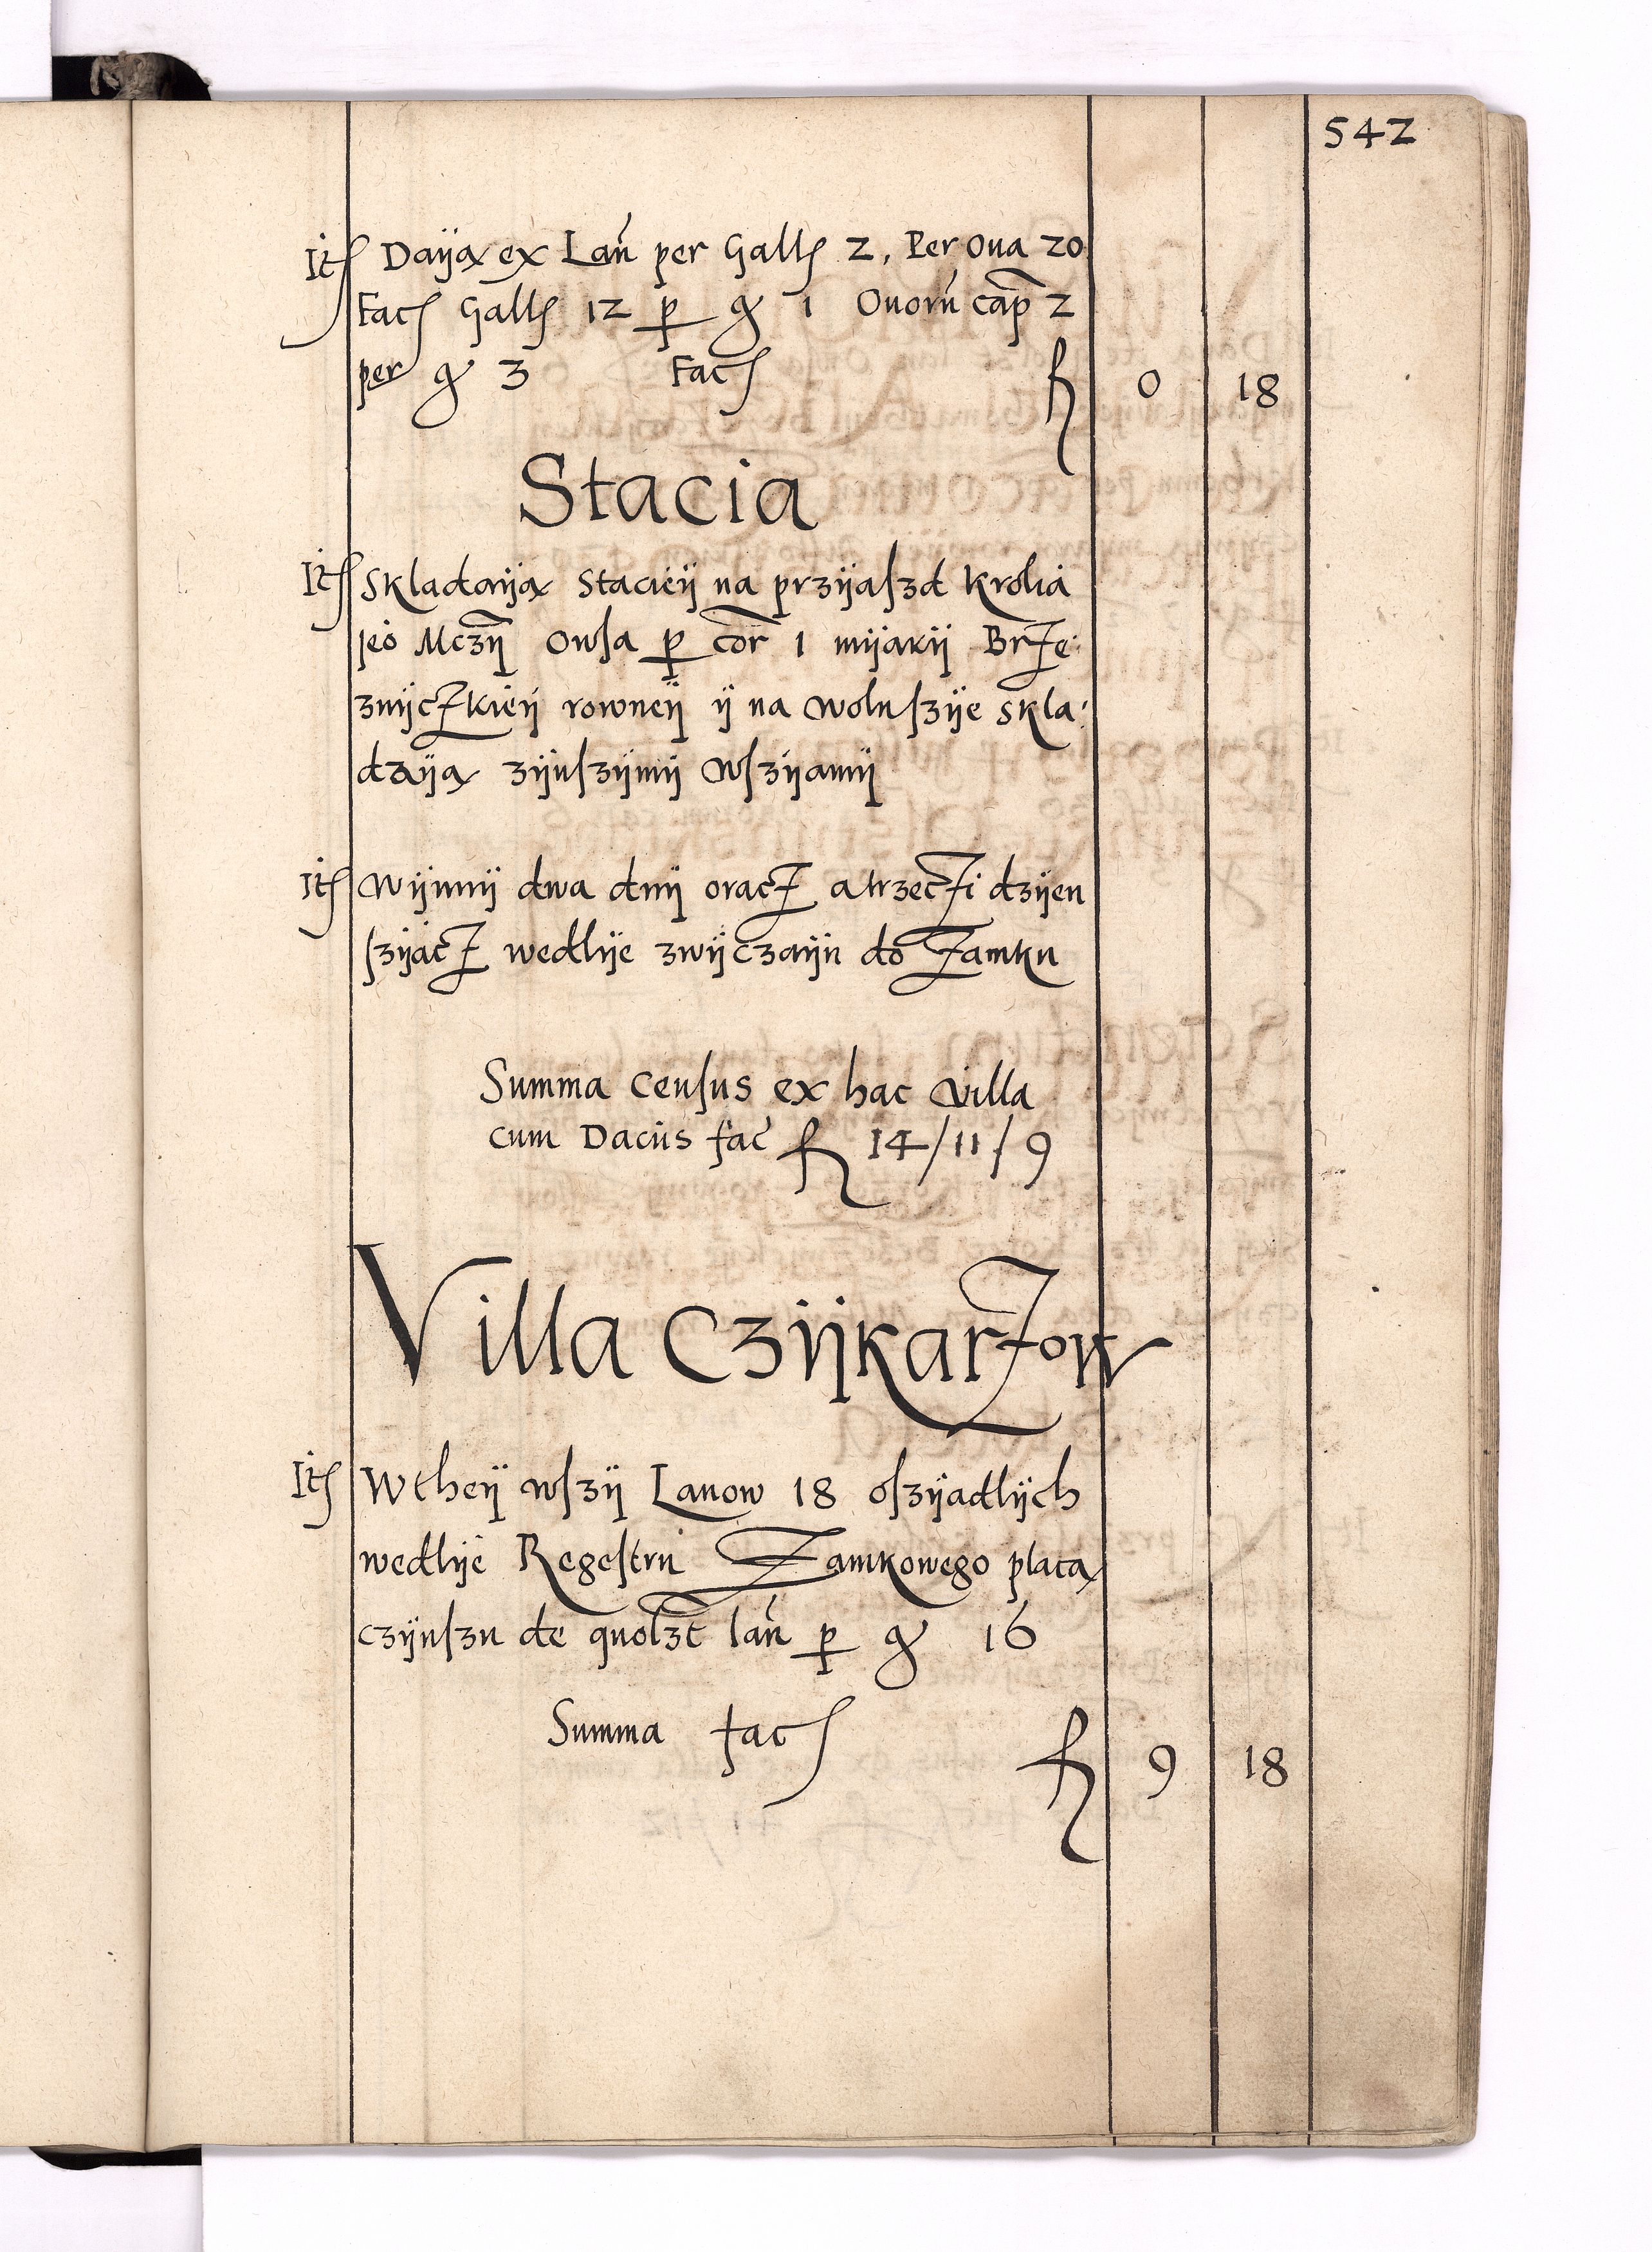 542
Itꝭ Daÿą ex Lań per Gallꝭ 2, Per Oua 20
Facꝭ Gallꝭ 12 p̱ gͬ 1 Ouorń cap̃ 2
per gͬ 3 Facꝭ fl 0 18
Stacia
Itꝭ Skladaÿą Stacieÿ na przÿaſzd Krolia
jeo Mczÿ Owſa p̱ cor̃ 1 mÿarÿ Brze:
znÿczkieÿ rowneÿ ÿ na wolnſzÿe skla:
dzaÿą zÿnſzÿmÿ wſzÿamÿ
Itꝭ Wÿnnÿ dwa dnÿ oracz atrzeczi dzÿen
ſzÿacz wedlÿe zwÿczaÿu do Zamku
Summa Cenſus ex hac villa
cum Daciis fać fl 14/11/9
Villa Czÿkarzow
Itꝭ Wtheÿ wſzÿ Lanow 18 oſzÿadlÿch
wedlÿe Regeſtru Zamkowego placą
czÿnſzu de quolzt̃ lań p̱ gͬ 16
Summa facꝭ fl 9 18